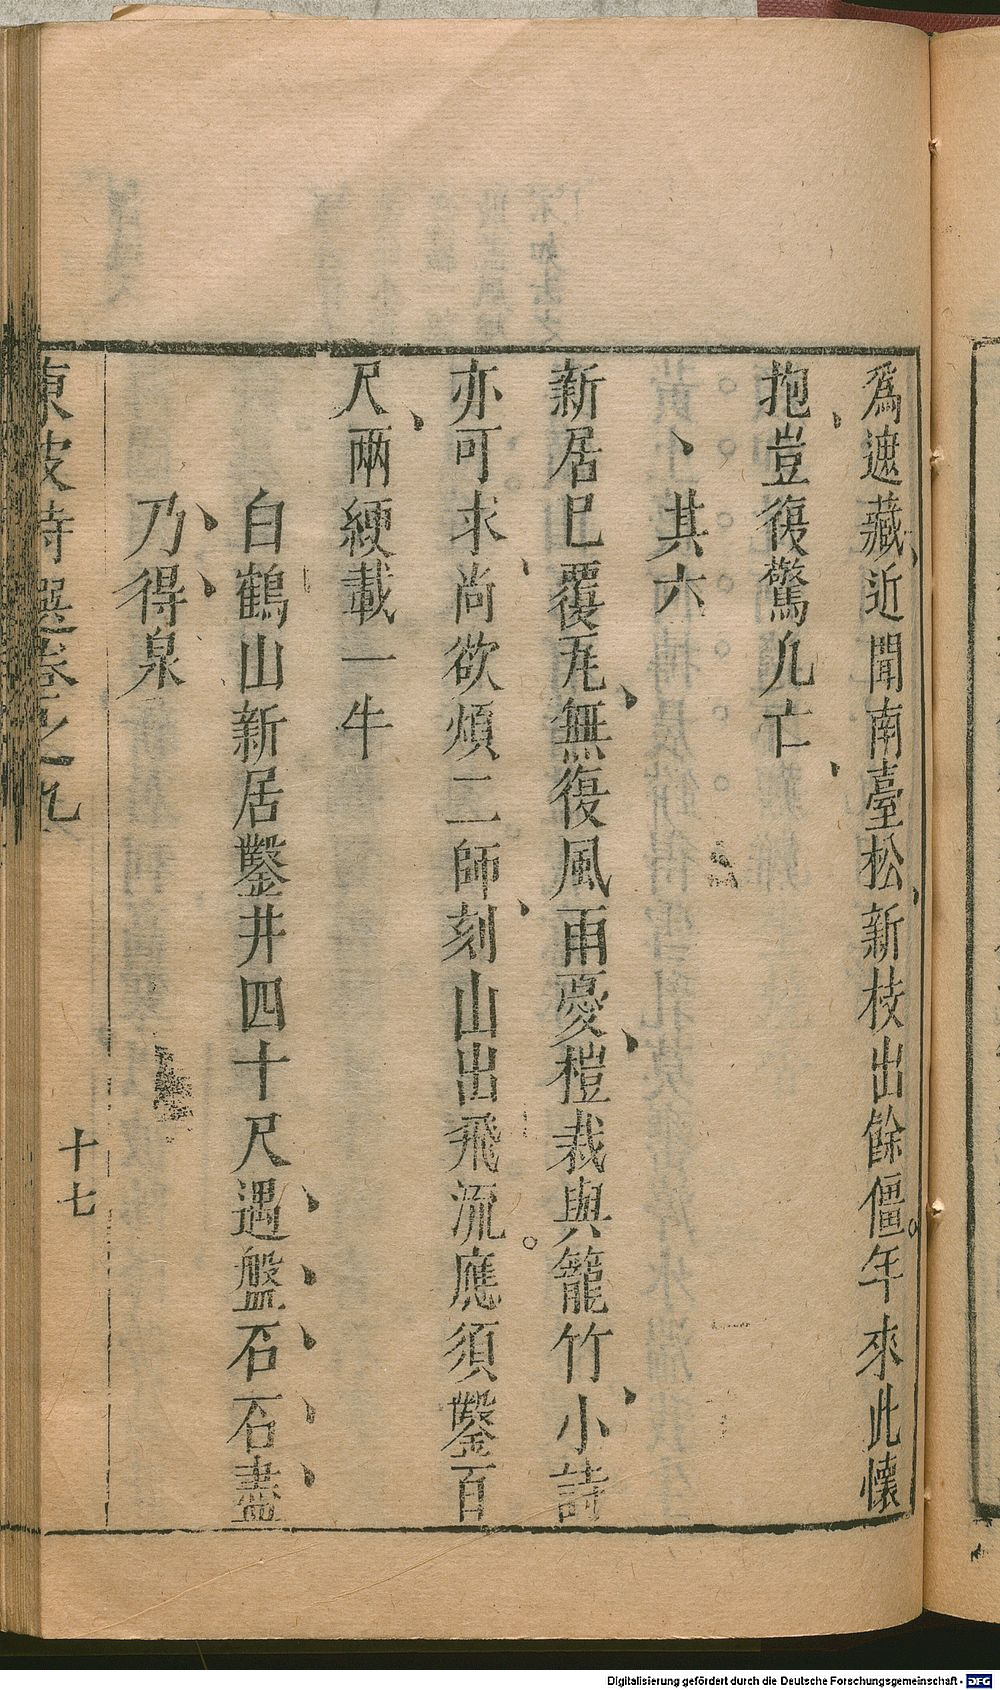 爲遮藏近聞南臺松新枝出餘僵年來此懷
抱豈復驚凢亡
其六
新居巳覆瓦無復風雨憂榿栽與籠竹小詩
亦可求尚欲煩二師刻山出飛流應須鑿百
尺兩綆載一牛
白鶴山新居鑿井四十尺遇盤石石盡
乃得泉
東坡詩選卷之九
十七
Digitalisierung gefördert durch die Deutsche Forschungsgemeinschaft - DFG